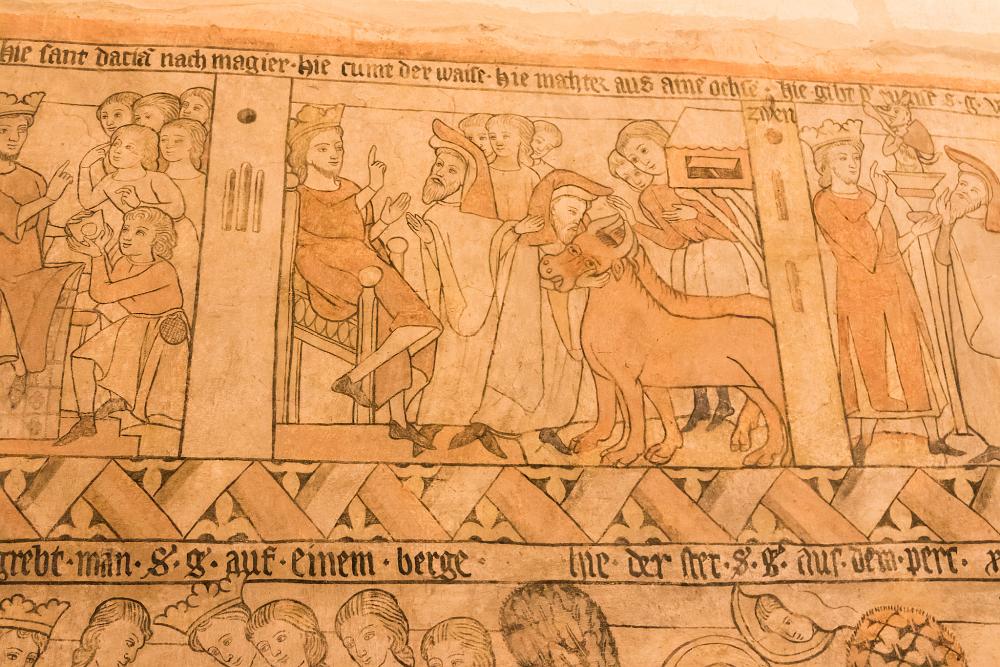 hie sant daciā nach magier · hie cumt der waise · hie machter aus aine ochse · hie gibt s · g ·
zwen
grebt · man · S · g · auf · einem · berge · hie · der ster · s · g · aus · dem · perc ·